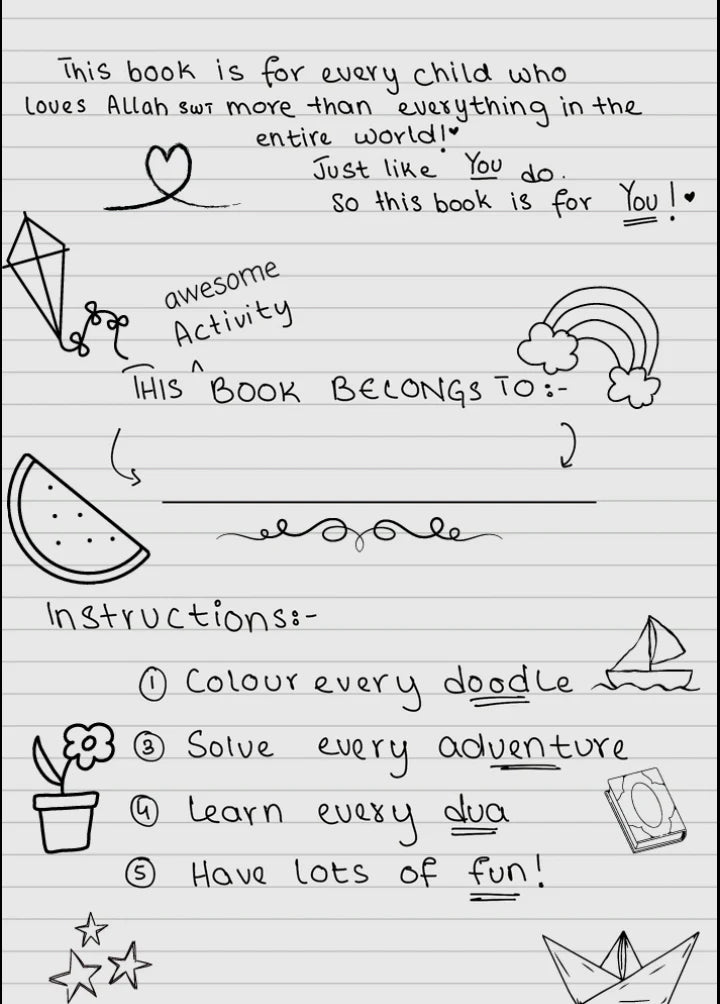 This book is for every child who
loves Allah SWT more than everything in the
entire world!
Just like You do.
So this book is for You!
awesome
Activity
THIS ^ BOOK BELONGS TO :-
Instructions:-
① Colour every doodle
③ Solve every adventure
④ Learn every dua
⑤ Have lots of fun!